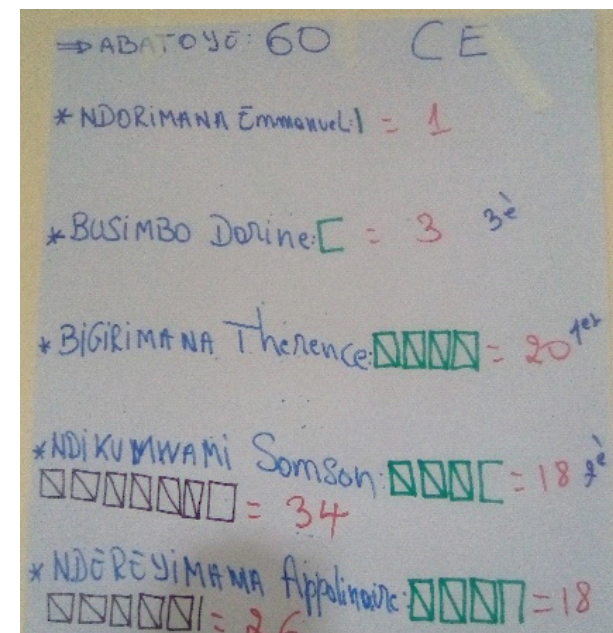 ⇒ ABATOYE: 60 CE
* NDORIMANA Emmanuel: = 1
* BUSIMBO Dorine: = 3 3è
* BIGIRIMANA Therence: = 20 1er
* NDIKUMWAMI Somson: = 18 2è
= 34
* NDEREYIMANA Appolinaire: = 18
= 26